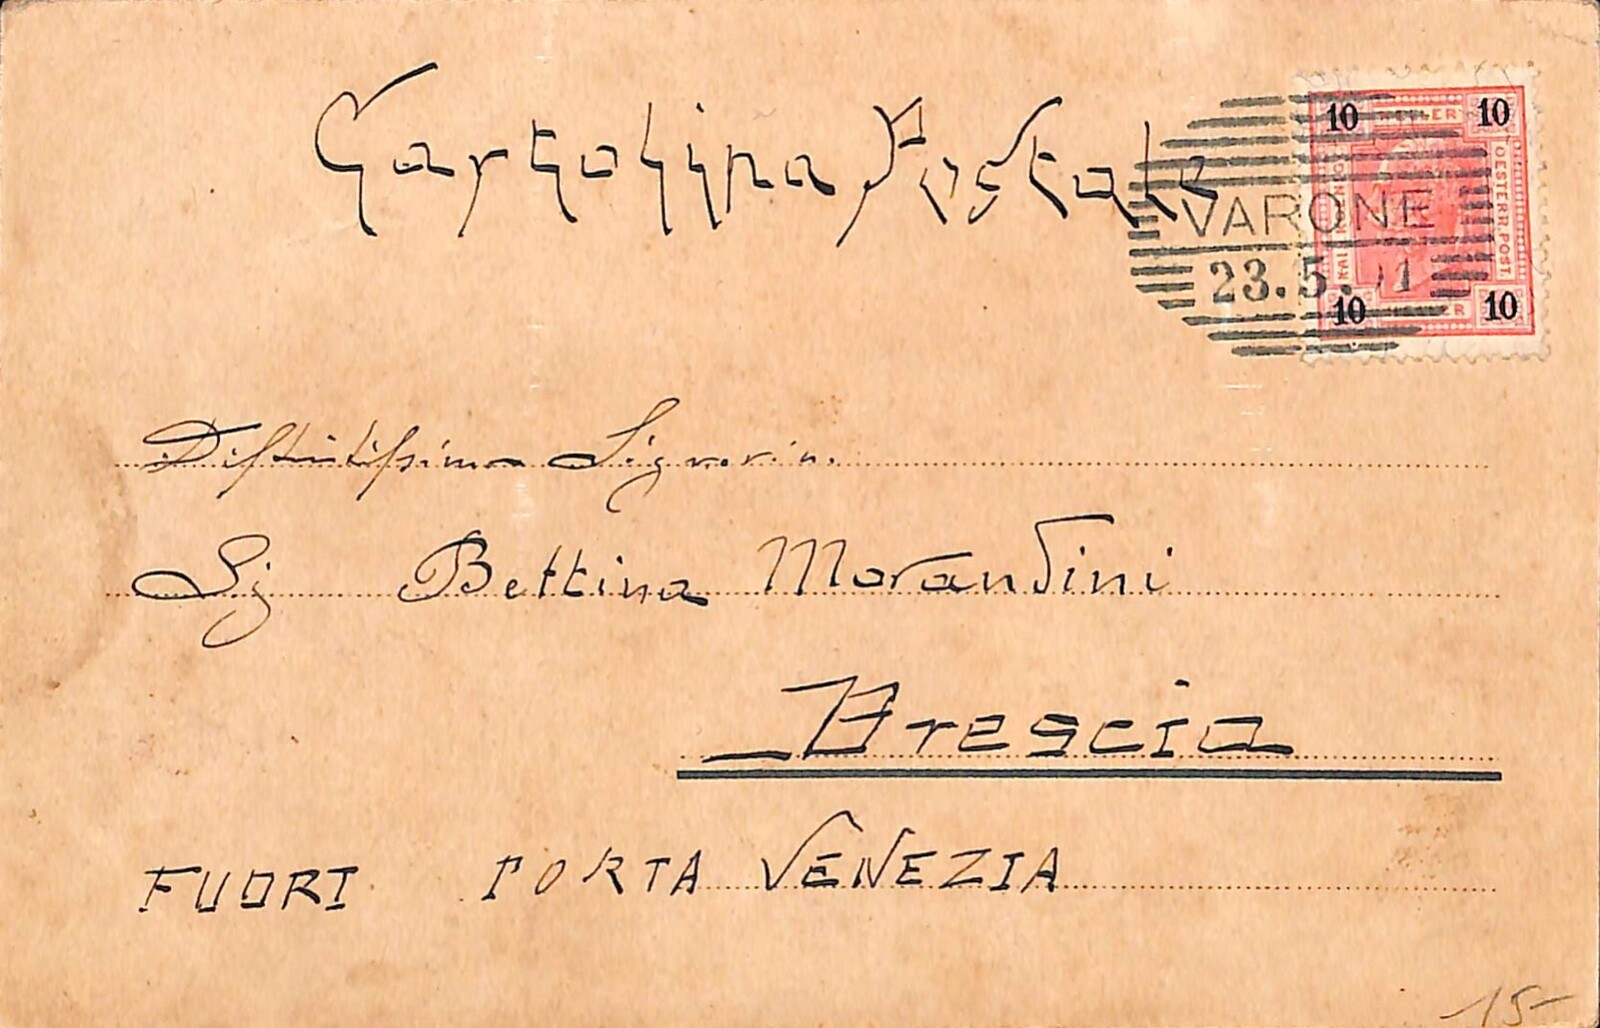 Cartolina Postale
10 HELLER 10
OESTERR. POST.
VARONE
23.5.
10 HELLER 10
Distintissima Signorina
Sig Bettina Morandini
Brescia
FUORI PORTA VENEZIA
15-